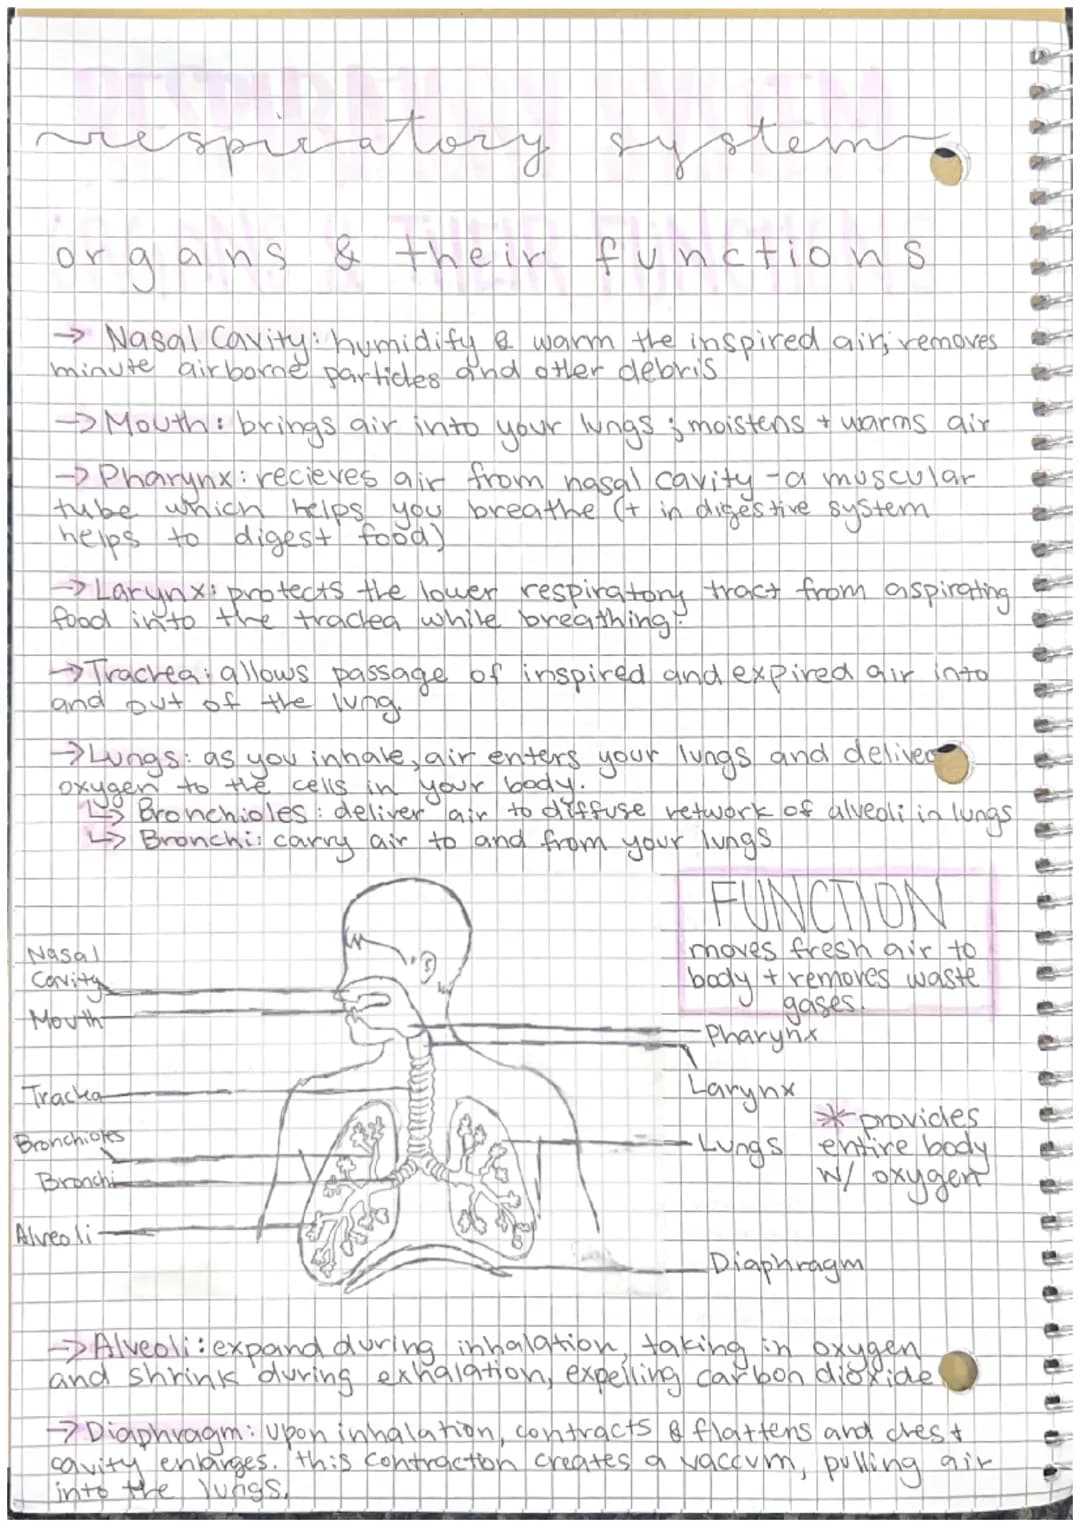 respiratory system
organs & their functions
→ Nasal Cavity: humidify & warm the inspired air; removes
minute airborne particles and other debris
→ Mouth: brings air into your lungs; moistens + warms air
→ Pharynx: recieves air from nasal cavity - a muscular
tube which helps you breathe (+ in digestive system
helps to digest food)
→ Larynx: protects the lower respiratory tract from aspirating
food into the trachea while breathing.
→ Trachea: allows passage of inspired and expired air into
and out of the lung.
→ Lungs: as you inhale, air enters your lungs and deliver
oxygen to the cells in your body.
↳ Bronchioles: deliver air to diffuse network of alveoli in lungs
↳ Bronchi: carry air to and from your lungs
FUNCTION
moves fresh air to
body + removes waste
gases.
Nasal
Cavity
Mouth
Trachea
Bronchioles
Bronchi
Alveoli
Pharynx
Larynx
Lungs
* provides
entire body
w/ oxygen
Diaphragm
→ Alveoli: expand during inhalation, taking in oxygen
and shrink during exhalation, expelling carbon dioxide
→ Diaphragm: Upon inhalation, contracts & flattens and chest
cavity enlarges. this contraction creates a vaccum, pulling air
into the lungs.